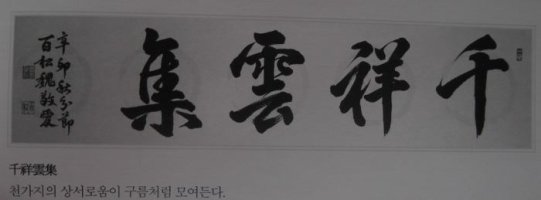 千祥雲集
辛卯秋分節
百松魏敬愛
千祥雲集
천가지의 상서로움이 구름처럼 모여든다.